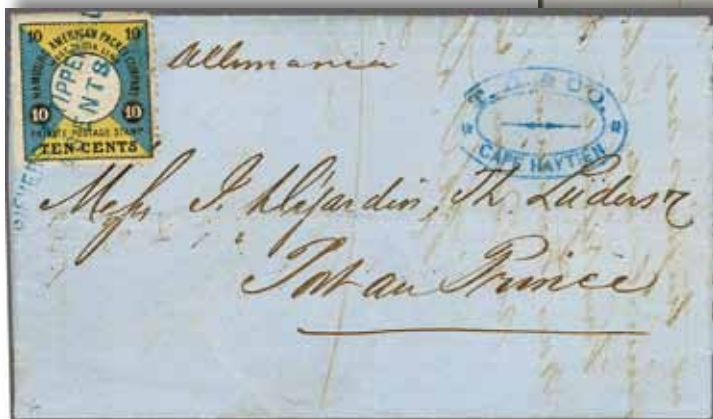 10 10
HAMBURG AMERICAN PACKET COMPANY
WEST INDIA LINE
10 10
PRIVATE POSTAGE STAMP
TEN CENTS
Allemania
& CO.
CAPE HAYTIEN
Mess J. Déjardin, Th. Lüders &
Port au Prince